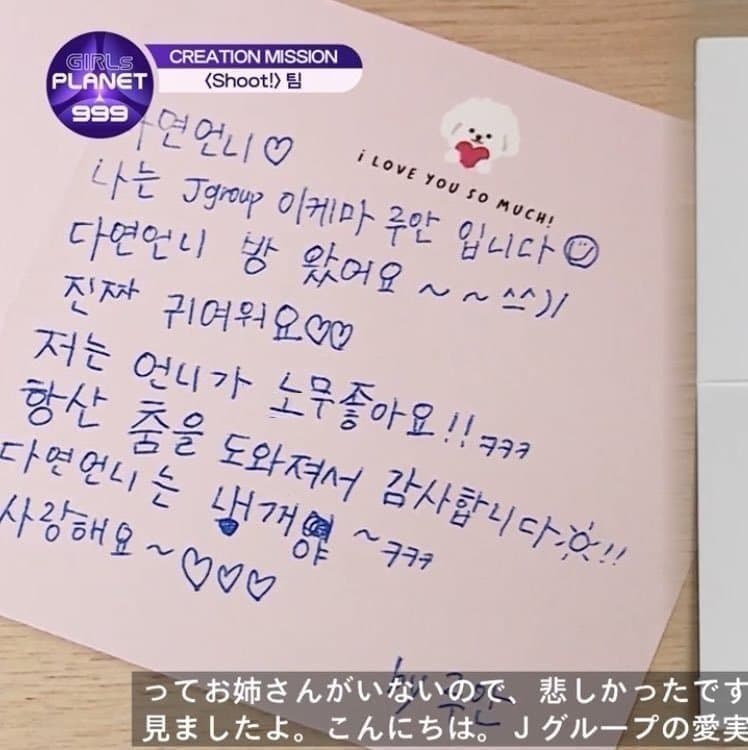 GIRLS
PLANET
999
CREATION MISSION
<Shoot!> 팀
다연언니♡
I LOVE YOU SO MUCH!
나는 Jgroup 이케마 루안 입니다☺
다연언니 방 왔어요 ~ ~ ^^)/
진짜 귀여워요♡♡
저는 언니가 노무좋아요!! ㅋㅋㅋ
항산 춤을 도와져서 감사합니다☼!!
다연언니는 내개야 ~ㅋㅋㅋ
사랑해요~♡♡♡
by 루안
ってお姉さんがいないので、悲しかったです
見ましたよ。こんにちは。Jグループの愛実